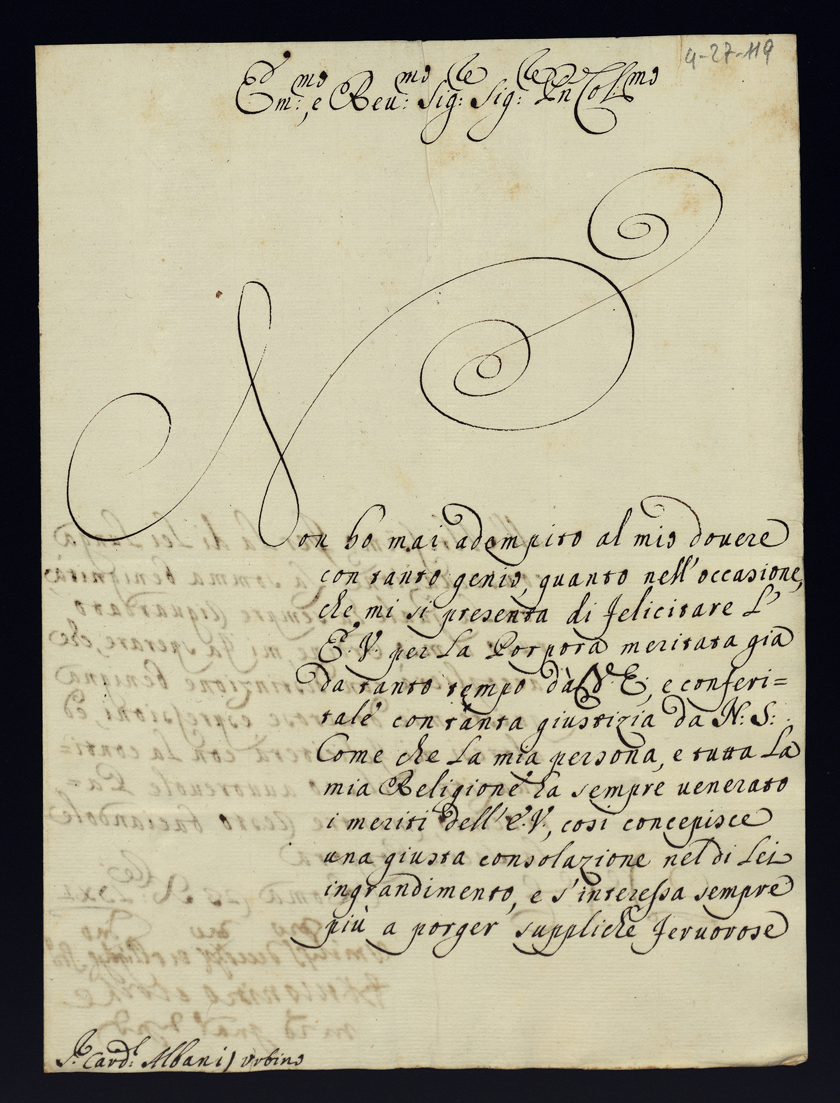 4-27-119
Em:mo, e Reu:mo Sig:re Sig:re Pñ Colmo
Non ho mai adempito al mio douere
con tanto genio, quanto nell'occasione,
che mi si presenta di felicitare L'
E.V. per La Porpora meritata già
da tanto tempo dà V.E., e conferi=
tale con tanta giustizia da N: S:
Come che La mia persona, e tutta La
mia Religione hà sempre uenerato
i meriti dell'E.V., cosi concepisce
una giusta consolazione nel di Lei
ingrandimento, e s'interessa sempre
più a porger suppliche feruorose
Sr. Card:l Albani / Urbino